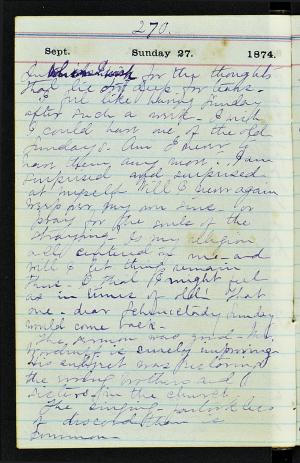 270.
Sept. Sunday 27. 1874.
for the thoughts
that lie too deep for tears.
I feel like having Sunday
after such a week. I wish
I could have one of the old
Sundays. Am I never to
have them any more. I am
surprised and surprised
at myself. Will I never again
weep over my own sins. Or
pray for the souls of the
straying. Is my religion
all centered in me - and
will I let things remain
thus. O that I might feel
as in times of old. That
one dear Schenectady Sunday
would come back.
The sermon was good. Mr.
is surely improving
His subject was restoring
the wrong brothers and
sisters in the church.
The singing
of discord than is
common